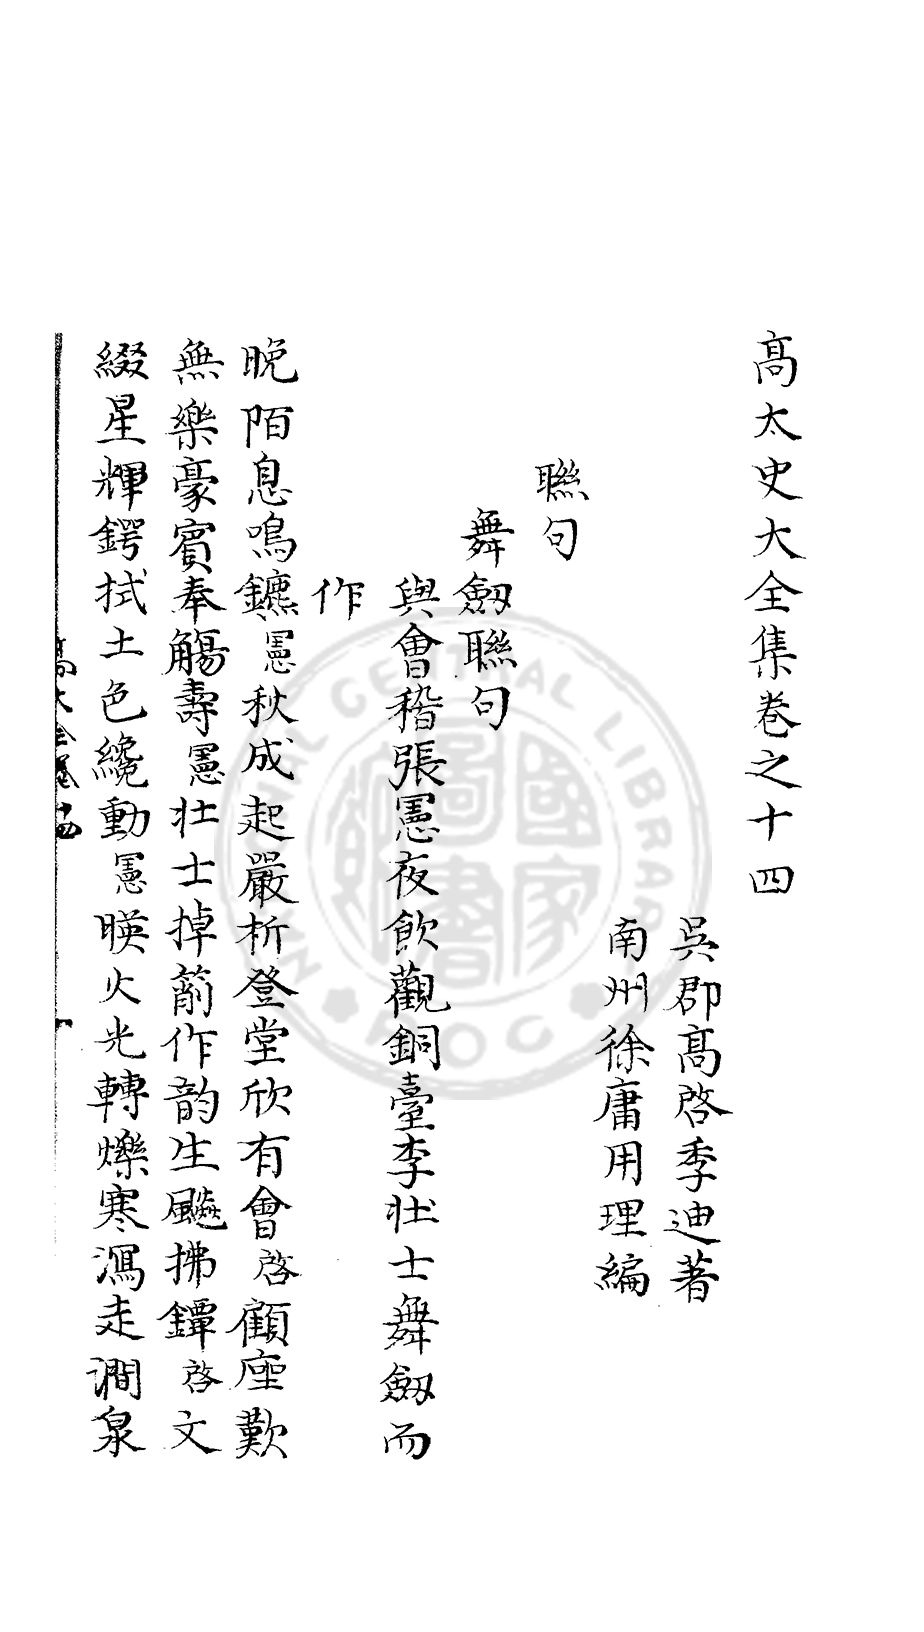 髙太史大全集卷之十四
吳郡髙啓季迪著
南州徐庸用理編
聯句
舞劔聯句
與會稽張憲夜飲觀銅臺李壯士舞劔而
作
晚陌息鳴鑣憲秋成起嚴柝登堂欣有會啓顧座歎
無樂豪賓奉觴壽憲壯士掉箾作韵生飈拂鐔啓文
綴星輝鍔拭土色纔動憲暎火光轉爍寒瀉走澗泉
國家圖書館
NATIONAL CENTRAL LIBRARY
ROC